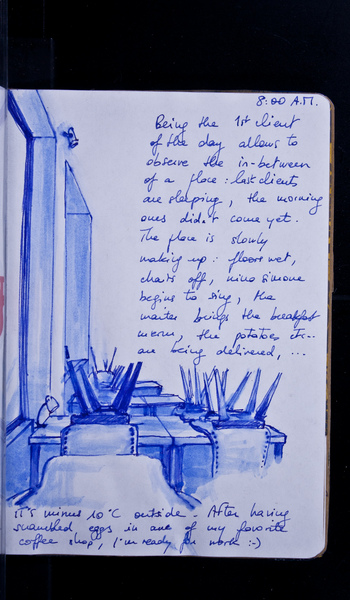 8:00 A.M.
Being the 1st client
of the day allows to
observe the in-between
of a place : last clients
are sleeping, the morning
ones didn't come yet.
The place is slowly
waking up : floors wet,
chairs off, nina simone
begins to sing, the
waiter brings the breakfast
menu, the potatoes etc..
are being delivered, ...
it's minus 10°C outside. After having
scrambled eggs in one of my favorite
coffee shop, I'm ready for work :-)